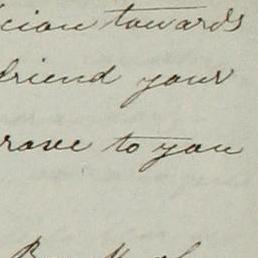 cian towards
friend your
rave to you